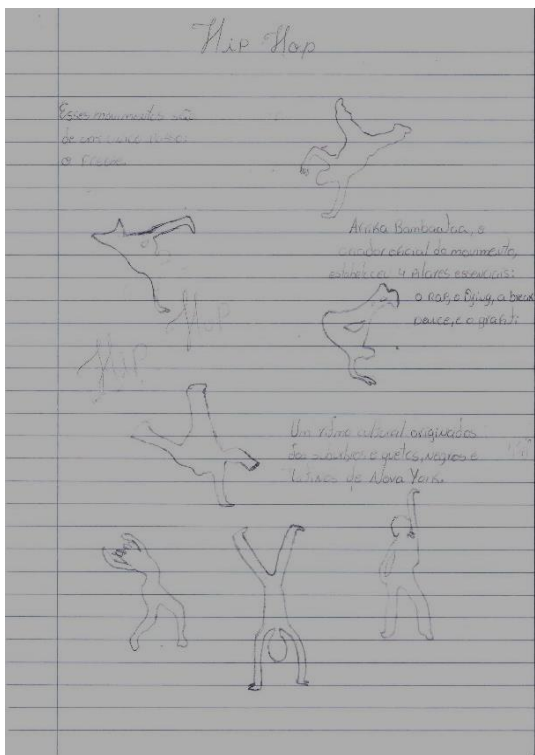 Hip Hop
Esses movimentos são
de
o
Afrika Bambaataa, o
criador oficial do movimento,
estabeleceu 4 pilares essenciais:
o Rap, o Djing, a break
Dance, e o grafiti
Hop
Hip
Um ritmo cultural originados
dos subúrbios e guetos, negros e
latinos de Nova York.